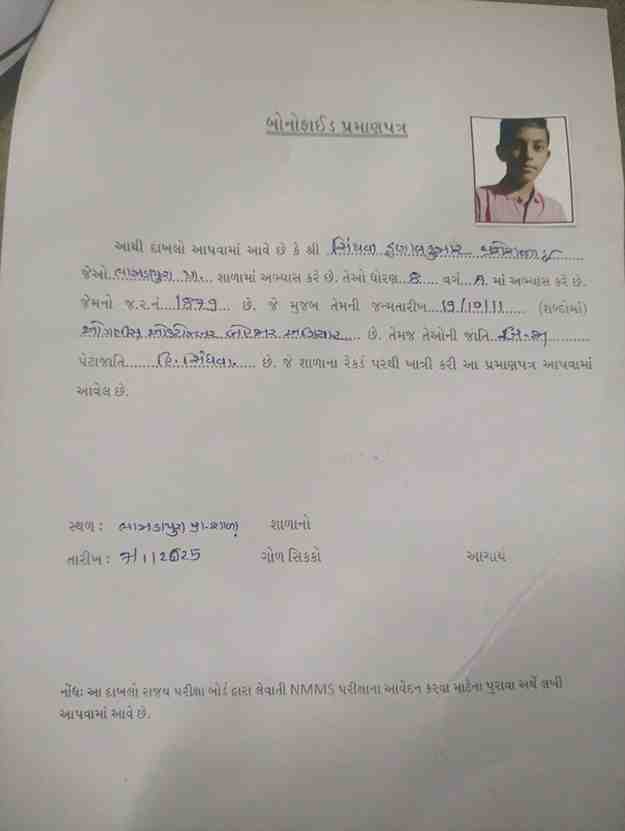 બોનોફાઈડ પ્રમાણપત્ર
આથી દાખલો આપવામાં આવે છે કે શ્રી સિંધવા કુણાલકુમાર
જેઓ લાખડાપુરા પ્રા. શાળામાં અભ્યાસ કરે છે. તેઓ ધોરણ 8 વર્ગ A માં અભ્યાસ કરે છે.
જેમનો જ.ર.નં. 1879 છે. જે મુજબ તેમની જન્મતારીખ 19/10/11 (શબ્દોમાં)
ઓગણીસ ઓક્ટોબર બે હજાર અગિયાર છે. તેમજ તેઓની જાતિ
પેટાજાતિ હિ. સિંધવા છે. જે શાળાના રેકર્ડ પરથી ખાત્રી કરી આ પ્રમાણપત્ર આપવામાં
આવેલ છે.
સ્થળ : લાખડાપુરા પ્રા. શાળા શાળાનો
તારીખ : 7/11/2025 ગોળ સિક્કો આચાર્ય
નોંધઃ આ દાખલો રાજ્ય પરીક્ષા બોર્ડ દ્વારા લેવાતી NMMS પરીક્ષાના આવેદન કરવા માટેના પુરાવા અર્થે લખી
આપવામાં આવે છે.